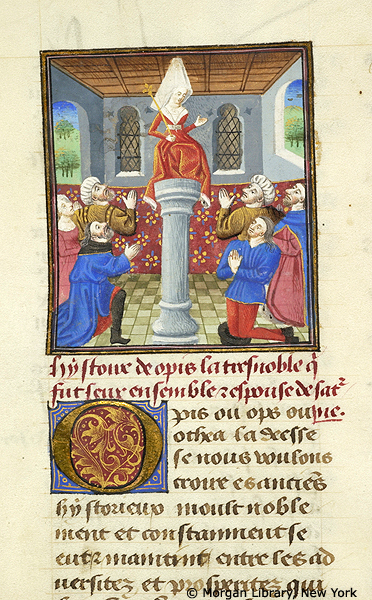 hystoire de opis la tresnoble q̃
fut seur ensemble ⁊ espouse de satr̃
Opis ou ops ou que.
othea la deesse
se nous voulons
croire es anciens
hystorieux moult noble
ment et constamment se
entrmaintint entre les ad
versitez et prosperitez qui
© Morgan Library, New York